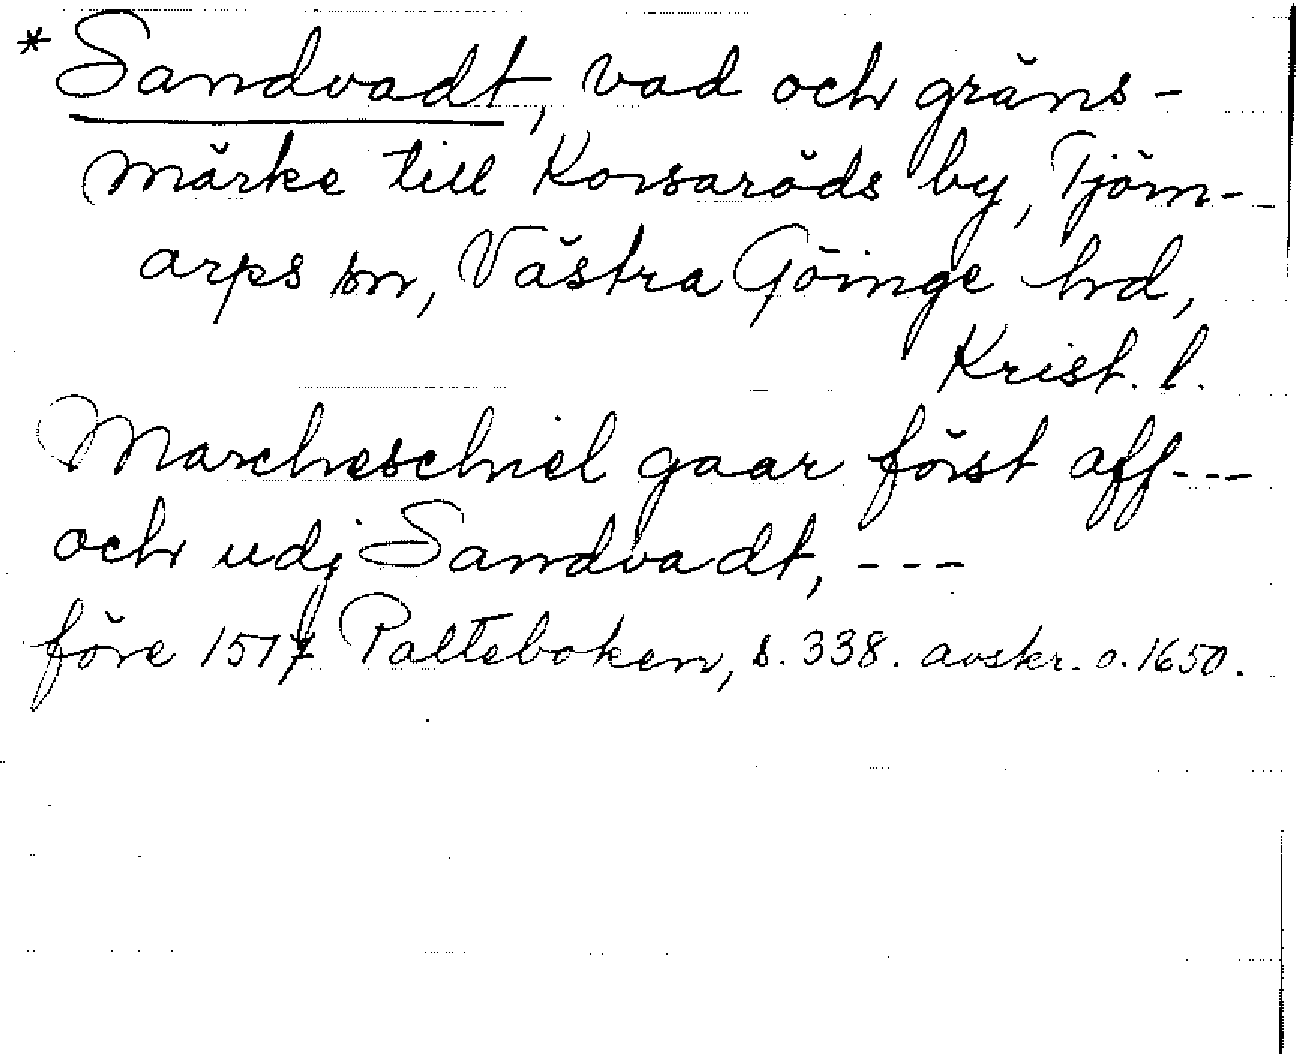 *Sandvadt, vad och gräns-
märke till Korsaröds by, Tjörn-
arps sn, Västra Göinge hd,
Krist. l.
Marcheschiel gaar först aff---
och udj Sandvadt, ---
före 1517 Palteboken, s. 338. avskr. o. 1650.